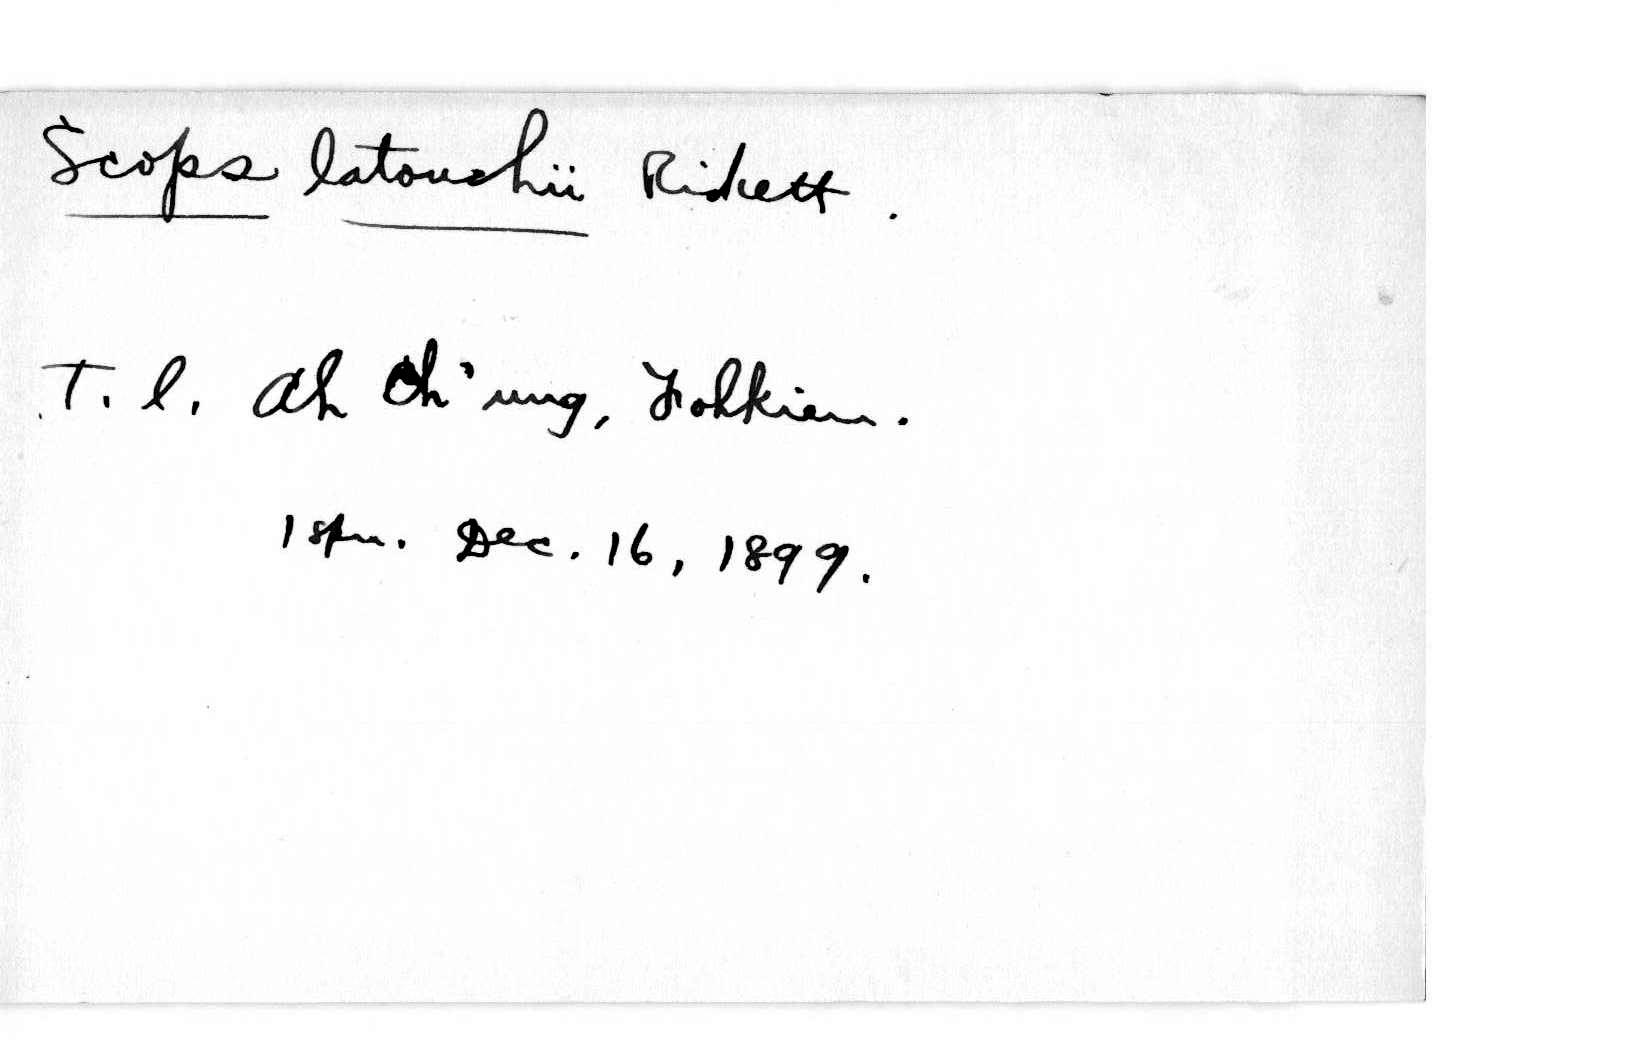 Scops latouchii Rickett.
T. l. Ah Ch'ung, Fohkien.
1 spm. Dec. 16, 1899.